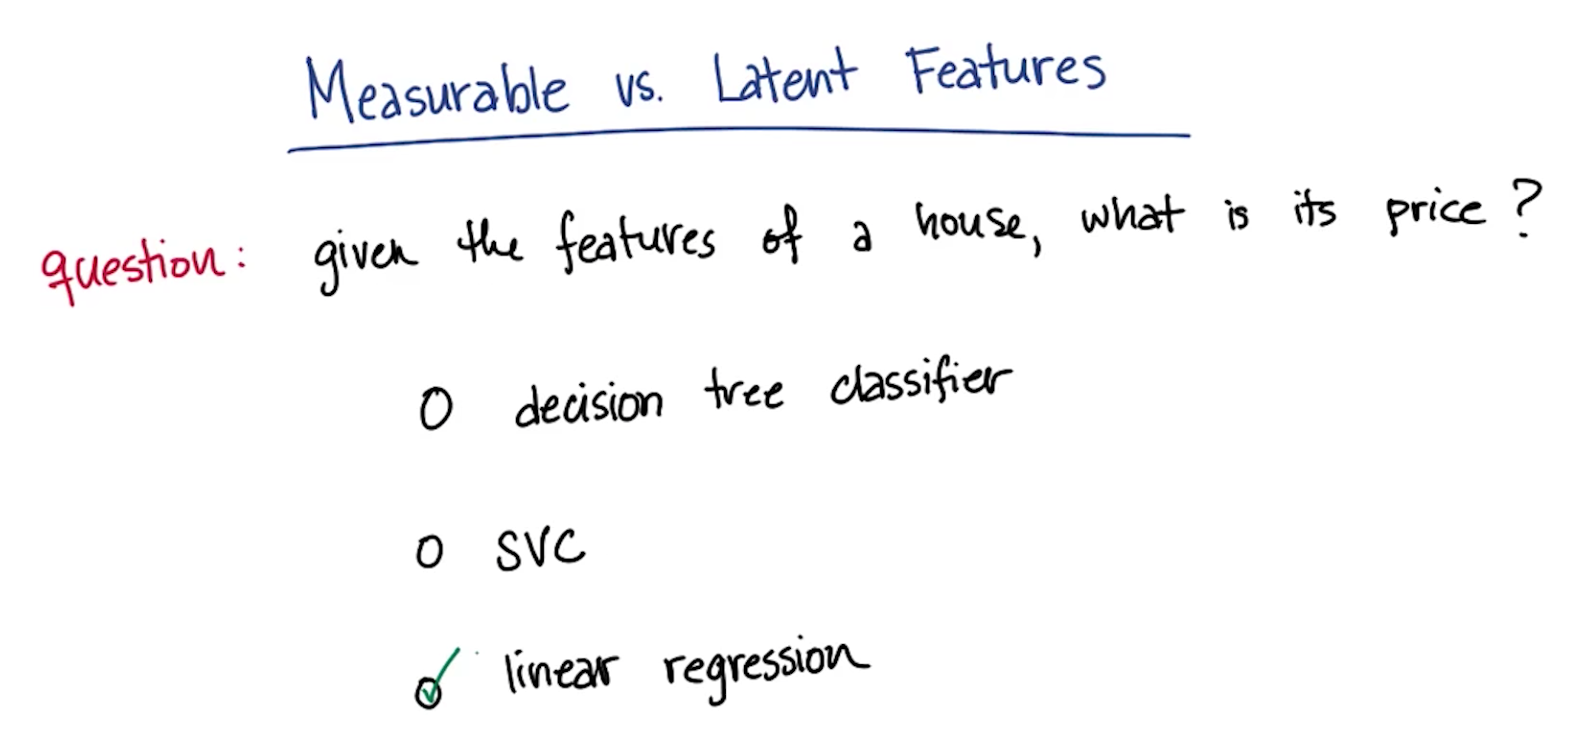 Measurable vs. Latent Features
question: given the features of a house, what is its price?
decision tree classifier
SVC
linear regression